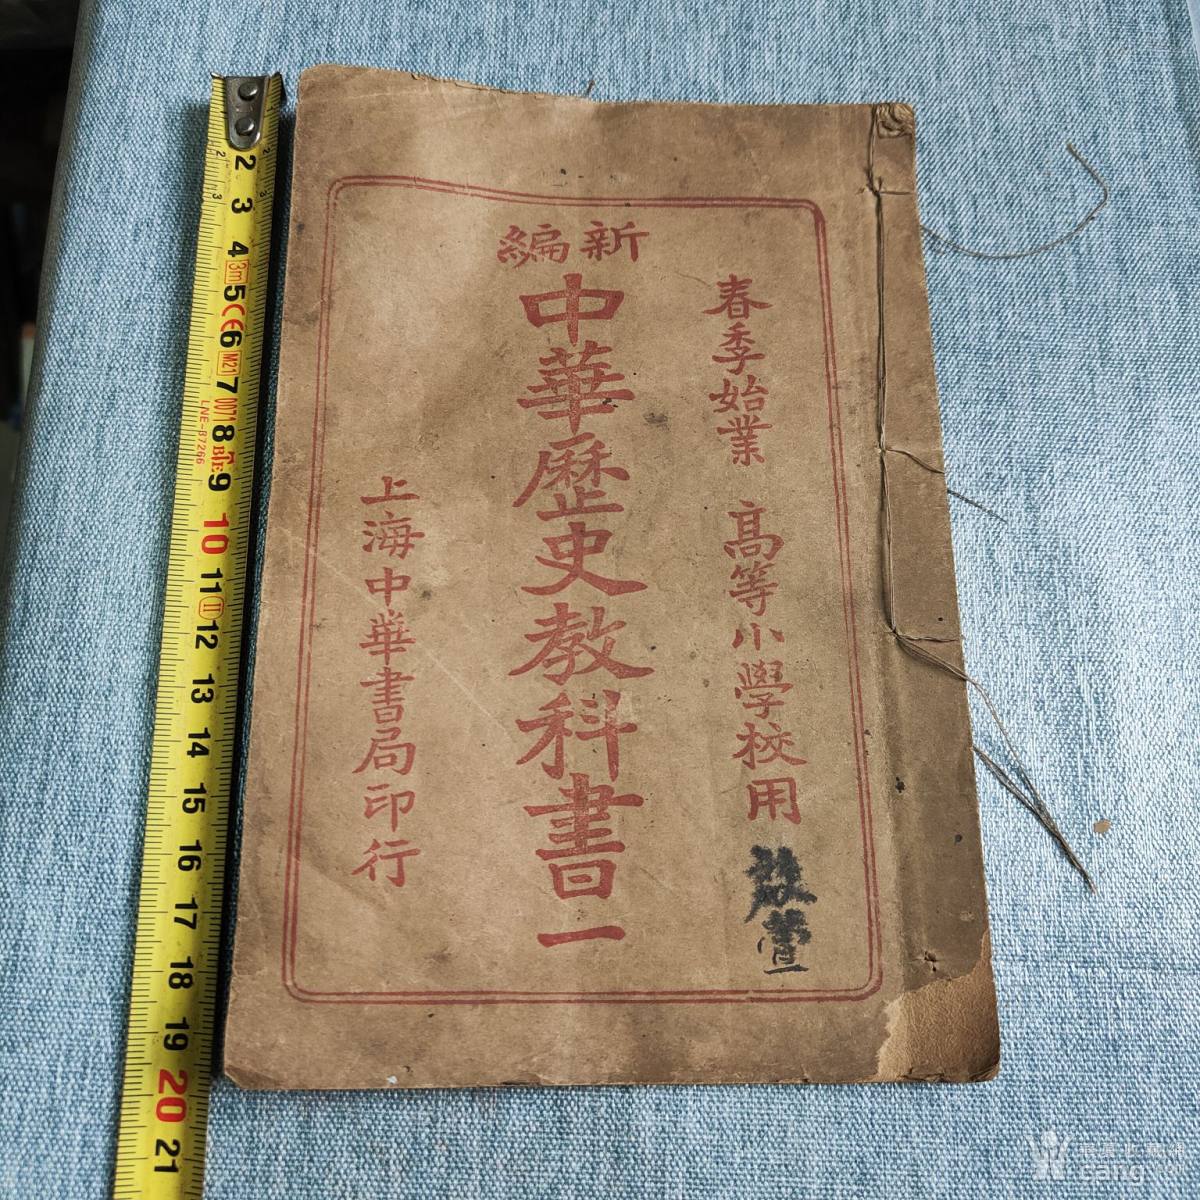 新編
春季始業 高等小學校用
中華歷史教科書一
上海中華書局印行
2
3
4
3m
5
CE
6
M21
7
0071
8
9
10
11
II
12
13
14
15
16
17
18
19
20
21
LNE-B7266